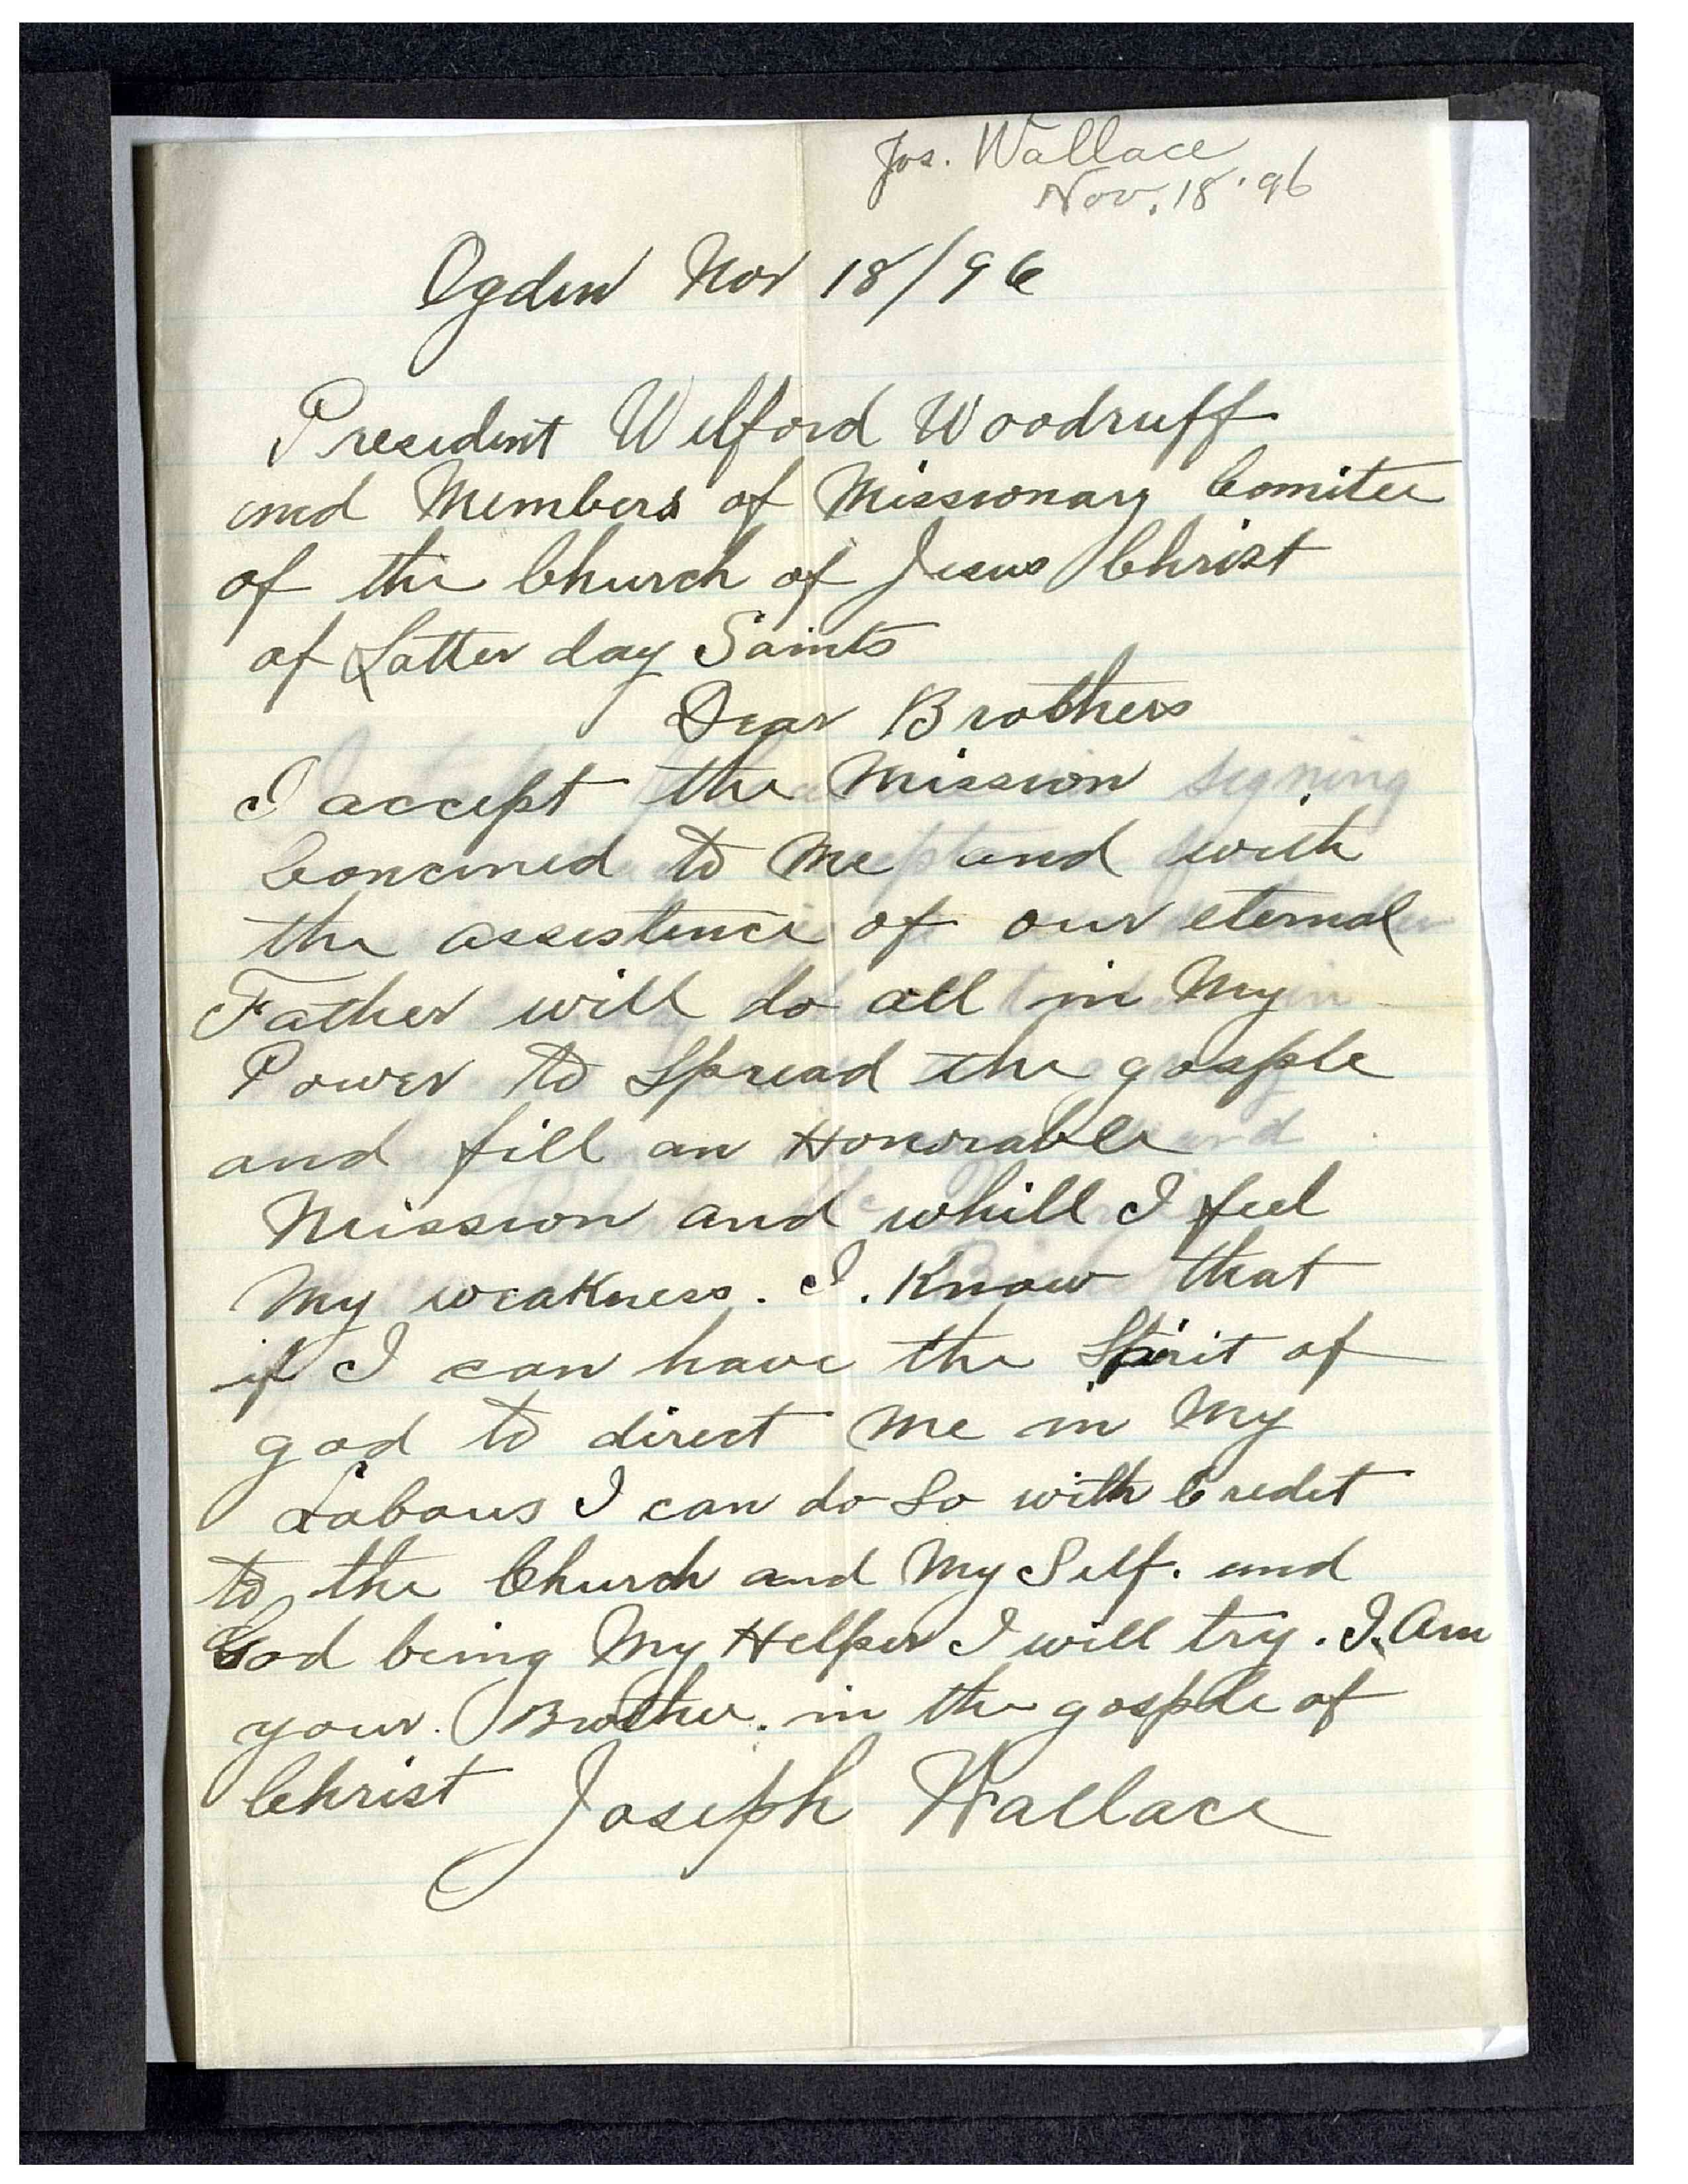 Jos. Wallace
Nov. 18 '96
Ogden Nov 18/96
President Wilford Woodruff
and Members of Missionary Comitee
of the Church of Jesus Christ
of Latter day Saints
Dear Brothers
I accept the Mission
Concined to Me and with
the assistence of our eternal
Father will do all in My
Power to Spread the gosple
and fill an Honorable
Mission and whill I feel
My weakness. I. Know that
if I can have the Spirit of
god to direct me in My
Labous I can do So with Credit
to the Church and My Self. and
God being My Helper I will try. I. Am
your. Brother. in the gosple of
Christ Joseph Wallace